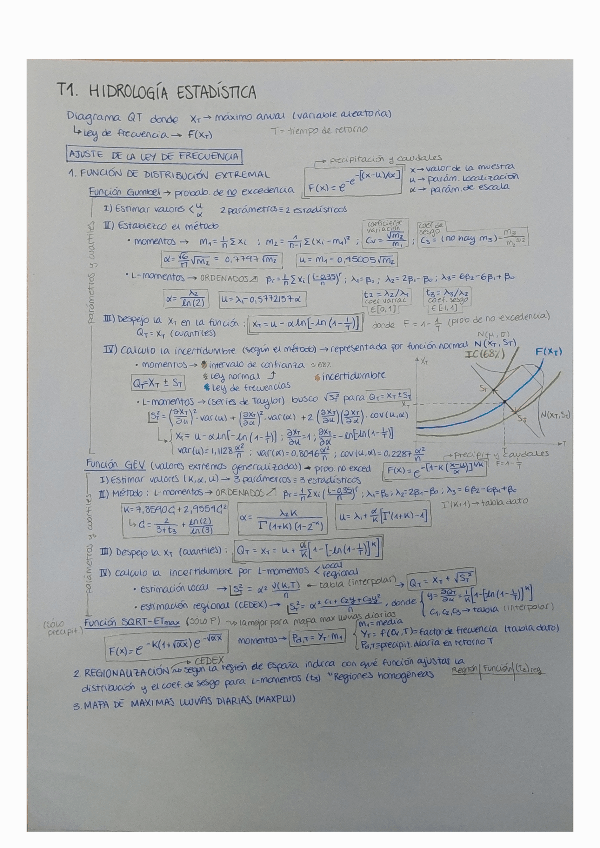 T1. HIDROLOGÍA ESTADÍSTICA
Diagrama QT donde X_T → máximo anual (variable aleatoria)
↳ Ley de frecuencia → F(X_T) T = tiempo de retorno
AJUSTE DE LA LEY DE FRECUENCIA
→ precipitación y caudales
1. FUNCIÓN DE DISTRIBUCIÓN EXTREMAL F(x) = e^-e^-[(x-u)/α]
x → valor de la muestra
u → parám. localización
α → parám. de escala
Función Gumbel → probab. de no excedencia
parámetros y cuartiles
I) Estimar valores < u α 2 parámetros = 2 estadísticos
II) Establezco el método
coeficiente variación
coef de sesgo
• momentos → m₁ = 1/n Σ xi ; m₂ = 1/n-1 Σ (xi - m₁)² ; Cv = √m₂/m₁ ; Cs = (no hay m₃) = m₃/m₂^3/2
α = √6/π √m₂ = 0,7797 √m₂ u = m₁ - 0,45005 √m₂
• L-momentos → ORDENADOS ↗ βr = 1/n Σ xi (i-0,35/n)^r ; λ₁ = β₀ ; λ₂ = 2β₁ - β₀ ; λ₃ = 6β₂ - 6β₁ + β₀
α = λ₂/ln(2) u = λ₁ - 0,5772157α
t₂ = λ₂/λ₁ coef variac. ∈[0,1]
t₃ = λ₃/λ₂ coef. sesgo ∈[-1,1]
III) Despejo la X_T en la función : X_T = u - α ln[-ln(1 - 1/T)] donde F = 1 - 1/T (prob de no excedencia)
Q_T = X_T (cuantiles)
IV) Calculo la incertidumbre (según el método) → representada por función normal N(X_T, S_T)
N(μ, σ)
• momentos → intervalo de confianza = 68%
Q_T = X_T ± S_T
Ley normal
Ley de frecuencias
incertidumbre
• L-momentos → (series de Taylor) busco √S_T² para Q_T = X_T ± S_T
S_T² = (∂X_T/∂u)² · var(u) + (∂X_T/∂α)² · var(α) + 2 (∂X_T/∂u)(∂X_T/∂α) · cov(u,α)
X_T = u - α ln[-ln(1 - 1/T)] ; ∂X_T/∂u = 1 ; ∂X_T/∂α = -ln[-ln(1 - 1/T)]
var(u) = 1,1128 α²/n ; var(α) = 0,8046 α²/n ; cov(u,α) = 0,2287 α²/n
X_T
IC (68%)
F(X_T)
S_T
S_T
N(X_T, S_T)
T
Función GEV (valores extremos generalizados) → prob. no exced
F(x) = e^-[1-K(x-u/α)]^1/K
→ Precipit y caudales
F = 1 - 1/T
parámetros y cuantiles
I) Estimar valores (K, α, u) → 3 parámetros = 3 estadísticos
II) Método: L-momentos → ORDENADOS ↗ βr = 1/n Σ xi (i-0,35/n)^r ; λ₁ = β₀ ; λ₂ = 2β₁ - β₀ ; λ₃ = 6β₂ - 6β₁ + β₀
K = 7,8590C + 2,9554C²
↳ C = 2/3+t₃ - ln(2)/ln(3)
α = λ₂K/Γ(1+K)(1-2^-K)
u = λ₁ + α/K [Γ(1+K) - 1]
Γ(K+1) → tabla dato
III) Despejo la X_T (cuantiles) : Q_T = X_T = u + α/K [1 - [-ln(1 - 1/T)]^K]
IV) Calculo la incertidumbre por L-momentos < local regional
• estimación local → S_T² = α² V(K,T)/n ← tabla (interpolar) → Q_T = X_T ± √S_T²
• estimación regional (CEDEX) → S_T² = α² C₁ + C₂y + C₃y²/n , donde y = ∂Q_T/∂α = 1/K [1 - [-ln(1 - 1/T)]^K]
C₁, C₂, C₃ → tabla (interpolar)
(sólo precipit)
Función SQRT-ETmax (SÓLO P) → la mejor para mapa max lluvias diarias
F(x) = e^-K(1+√αx) e^-√αx
↳ CEDEX
momentos → P_d,T = Y_T · m₁
m₁ = media
Y_T = f(Cv, T) = factor de frecuencia (tabla dato)
P_d,T = precipit. diaria en retorno T
2. REGIONALIZACIÓN → según la región de España indica con qué función ajustar la
distribución y el coef de sesgo para L-momentos (t₃) "Regiones homogéneas
Región | Función | (t₃) reg
3. MAPA DE MÁXIMAS LLUVIAS DIARIAS (MAXPLU)